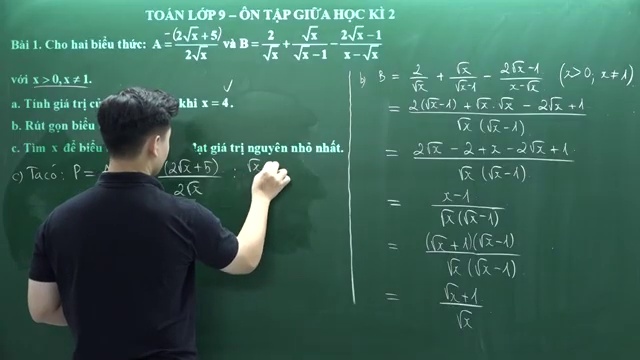 TOÁN LỚP 9 – ÔN TẬP GIỮA HỌC KÌ 2
Bài 1. Cho hai biểu thức: A = -(2√x + 5) / 2√x và B = 2/√x + √x/(√x - 1) - (2√x - 1)/(x - √x)
với x > 0, x ≠ 1.
a. Tính giá trị củ khi x = 4.
b. Rút gọn biểu
c. Tìm x để biểu đạt giá trị nguyên nhỏ nhất.
c) Ta có: P = (2√x + 5) / 2√x : √x
b) B = 2/√x + √x/(√x-1) - (2√x-1)/(x-√x) (x>0; x≠1)
= (2(√x-1) + √x.√x - 2√x+1) / √x(√x-1)
= (2√x - 2 + x - 2√x + 1) / √x(√x-1)
= (x-1) / √x(√x-1)
= (√x+1)(√x-1) / √x(√x-1)
= (√x+1) / √x